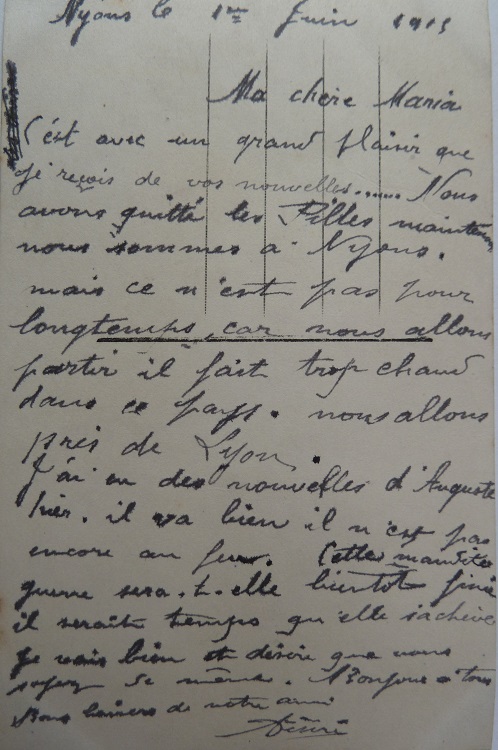 Nyons le 1er Juin 1915
Ma chère Maria
C'est avec un grand plaisir que
je reçois de vos nouvelles...... Nous
avons quitté les Pilles maintenant
nous sommes a Nyons.
mais ce n'est pas pour
longtemps, car nous allons
partir il fait trop chaud
dans ce pays. nous allons
près de Lyon.
J'ai eu des nouvelles d'Auguste
hier. il va bien il n'est pas
encore au feu. Cette maudite
guerre sera-t-elle bientot finie
il serait temps qu'elle s'achève
Je vais bien et désire que vous
soyez de même. Bonjour a tous
Bons baisers de votre ami
Désiré